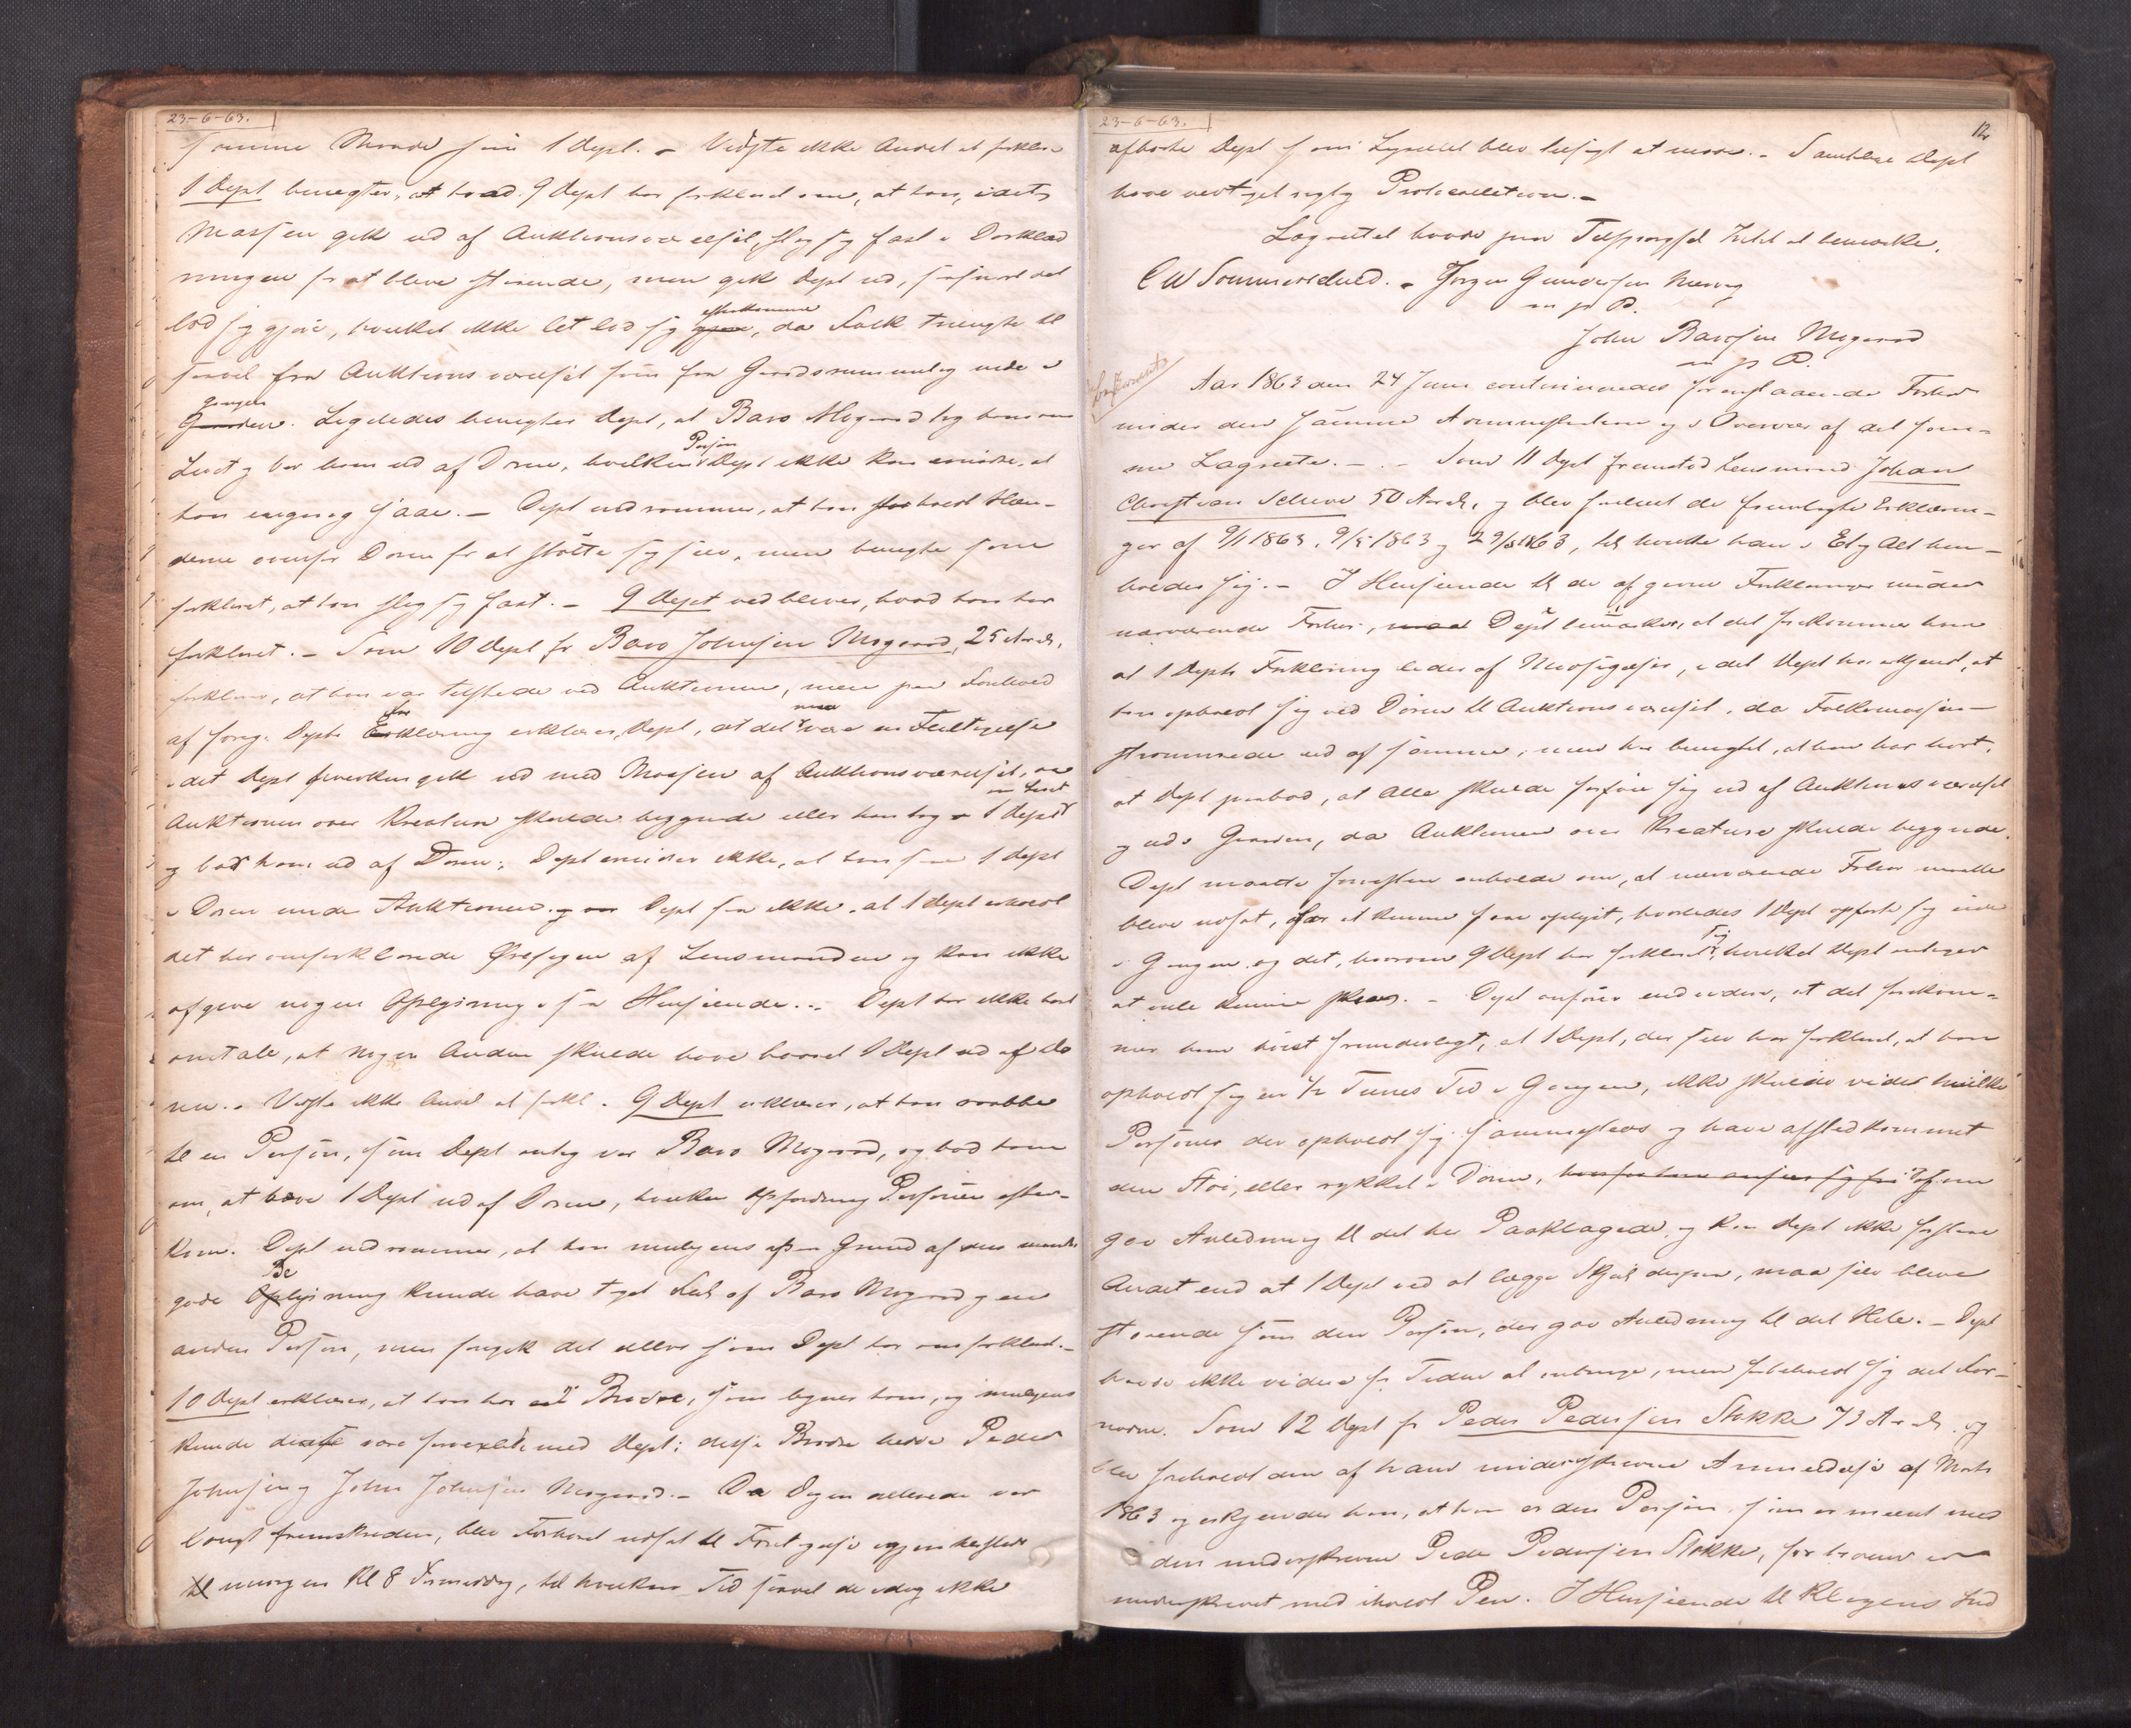 23-6-63.
samme Maade som 1 Dept. - Vidste ikke Andet at forkla-
1 Dept benegter, at hvad 9 Dept har forklaret om, at han, idet
Massen gik ud af Auktionsværelset, slog sig fast i Dørklæd
ningen for at blive staaende, men gik Dept ud, saasnart det
lod sig gjøre, hvilket ikke let lod sig efterkomme, da Folk trængte til
saavel fra Auktionsværelset som fra Gaardsrummet og inde i
Gangen. Ligeledes benegter Dept, at Baro Mogaard tog ham om
Livet og bar ham ud af Døren, hvilken Person Dept ikke kan erindre, at
han engang saae. - Dept indrømmer, at han holdt Hæn-
derne overfor Døren for at støtte sig selv, men benegter som
forklaret, at han slog sig fast. - 9 Dept vedbliver, hvad han har
forklaret. - Som 10 Dept fr Baro Johnsen Mogaard, 25 Aar gl.,
forklarer, at han var tilstede ved Auktionen, men paa Forehold
af forrig. Depts Forklaring erklærer Dept, at det maa være en Feiltagelse
idet Dept hverken gik ud med Massen af Auktionsværelset, da
Auktionen over Kreature skulde begynde eller han tog 1 Dept om Livet
og bar ham ud af Døren; Dept erindrer ikke, at han saae 1 Dept
i Døren under Auktionen. Dept saa ikke, at 1 Dept erholdt
det her omforklarede Ørefigen af Lensmanden og kan ikke
afgive nogen Oplysning i saa Henseende. - Dept har ikke hørt
omtale, at nogen Anden skulde have baaret 1 Dept ud af Dø
ren. - Vidste ikke Andet at forkl. - 9 Dept erklærer, at han raabte
til en Person, som Dept antog var Baro Mogaard, og bad ham
om, at bære 1 Dept ud af Døren, hvilken Opfordring Personen efter-
kom. Dept indrømmer, at han muligens paa Grund af den
gode Belysning kunde have taget Feil af Baro Mogaard og en
anden Person, men foregik det ellers som Dept har omforklaret. -
10 Dept erklærer, at han har 2 Brødre, som ligner ham, og muligens
kunde disse være forvexlede med Dept; disse Brødre hedde Peder
Johnsen og John Johnsen Mogaard. - Da Dagen allerede var
langt fremskreden, blev Forhøret udsat til Foretagelse igjen hersteds
imorgen Kl 8 Formiddag, til hvilken Tid saavel de idag ikke
23-6-63.
12
afhørte Dept som Lagrettet blev tilsagt at møde. - Samtlige Dept
have vedtaget rigtig Protocollation. -
Lagrettet havde paa Tilspørgsel Intet at bemærke.
C W Sommerfeldt. - Jørgen Gundersen
m p P.
John Barosen Mogaard
m p P.
Aar 1863 den 24 Juni continueredes foranstaaende Forhør
under den samme Administration og i Overvær af det sam-
me Lagrette. - . - Som 11 Dept fremstod Lensmand Johan
Christian Schive 50 Aar gl. og blev forelæst de fremlagte Erklærin-
ger af 9/1 1863, 9/5 1863 og 29/5 1863, til hvilke han i Et og Alt hen-
holder sig. - I Henseende til de afgivne Forklaringer under
nærværende Forhør, Dept bemærker, at det forekommer ham
at 1 Depts Forklaring lider af Modsigelser, idet Dept har erkjendt, at
han opholdt sig ved Døren til Auktionsværelset, da Folkemassen
strømmede ud af samme, men har benegtet, at han har hørt,
at Dept paabød, at Alle skulde forføie sig ud af Auktionsværelset
og ud i Gaarden, da Auktionen over Kreature skulde begynde.
Dept maatte forresten anholde om, at nærværende Forhør maatte
blive udsat, for at kunne faae oplyst, hvorledes 1 Dept opførte sig inde
i Gangen og det, hvorom 9 Dept har forklaret sig, hvilket Dept antager
at ville kunne skee. - Dept anfører endvidere, at det forekom-
mer ham høist forunderligt, at 1 Dept, der selv har forklaret, at han
opholdt sig en 1/2 Times Tid i Gangen, ikke skulde vide hvilke
Personer der opholdt sig sammesteds og have afstedkommet
den Støi, eller rykket i Døren, som
gav Anledning til det her Paaklagede, og kan Dept ikke forstaae
Andet end at 1 Dept ved at lægge Skjul derpaa, maa selv blive
staaende som den Person, der gav Anledning til det Hele. - Dept
havde ikke videre for Tiden at anbringe, men forbeholdt sig det For-
nødne. Som 12 Dept fr Peder Pedersen Stokke 73 Aar gl. og
blev foreholdt den af ham underskrevne Anmeldelse af Marts
1863 og erkjender han, at han er den Person, som er meent med
den underskrevne Peder Pedersen Stokke, for hvem er
underskrevet med iholdt Pen. I Henseende til Klagens Ind